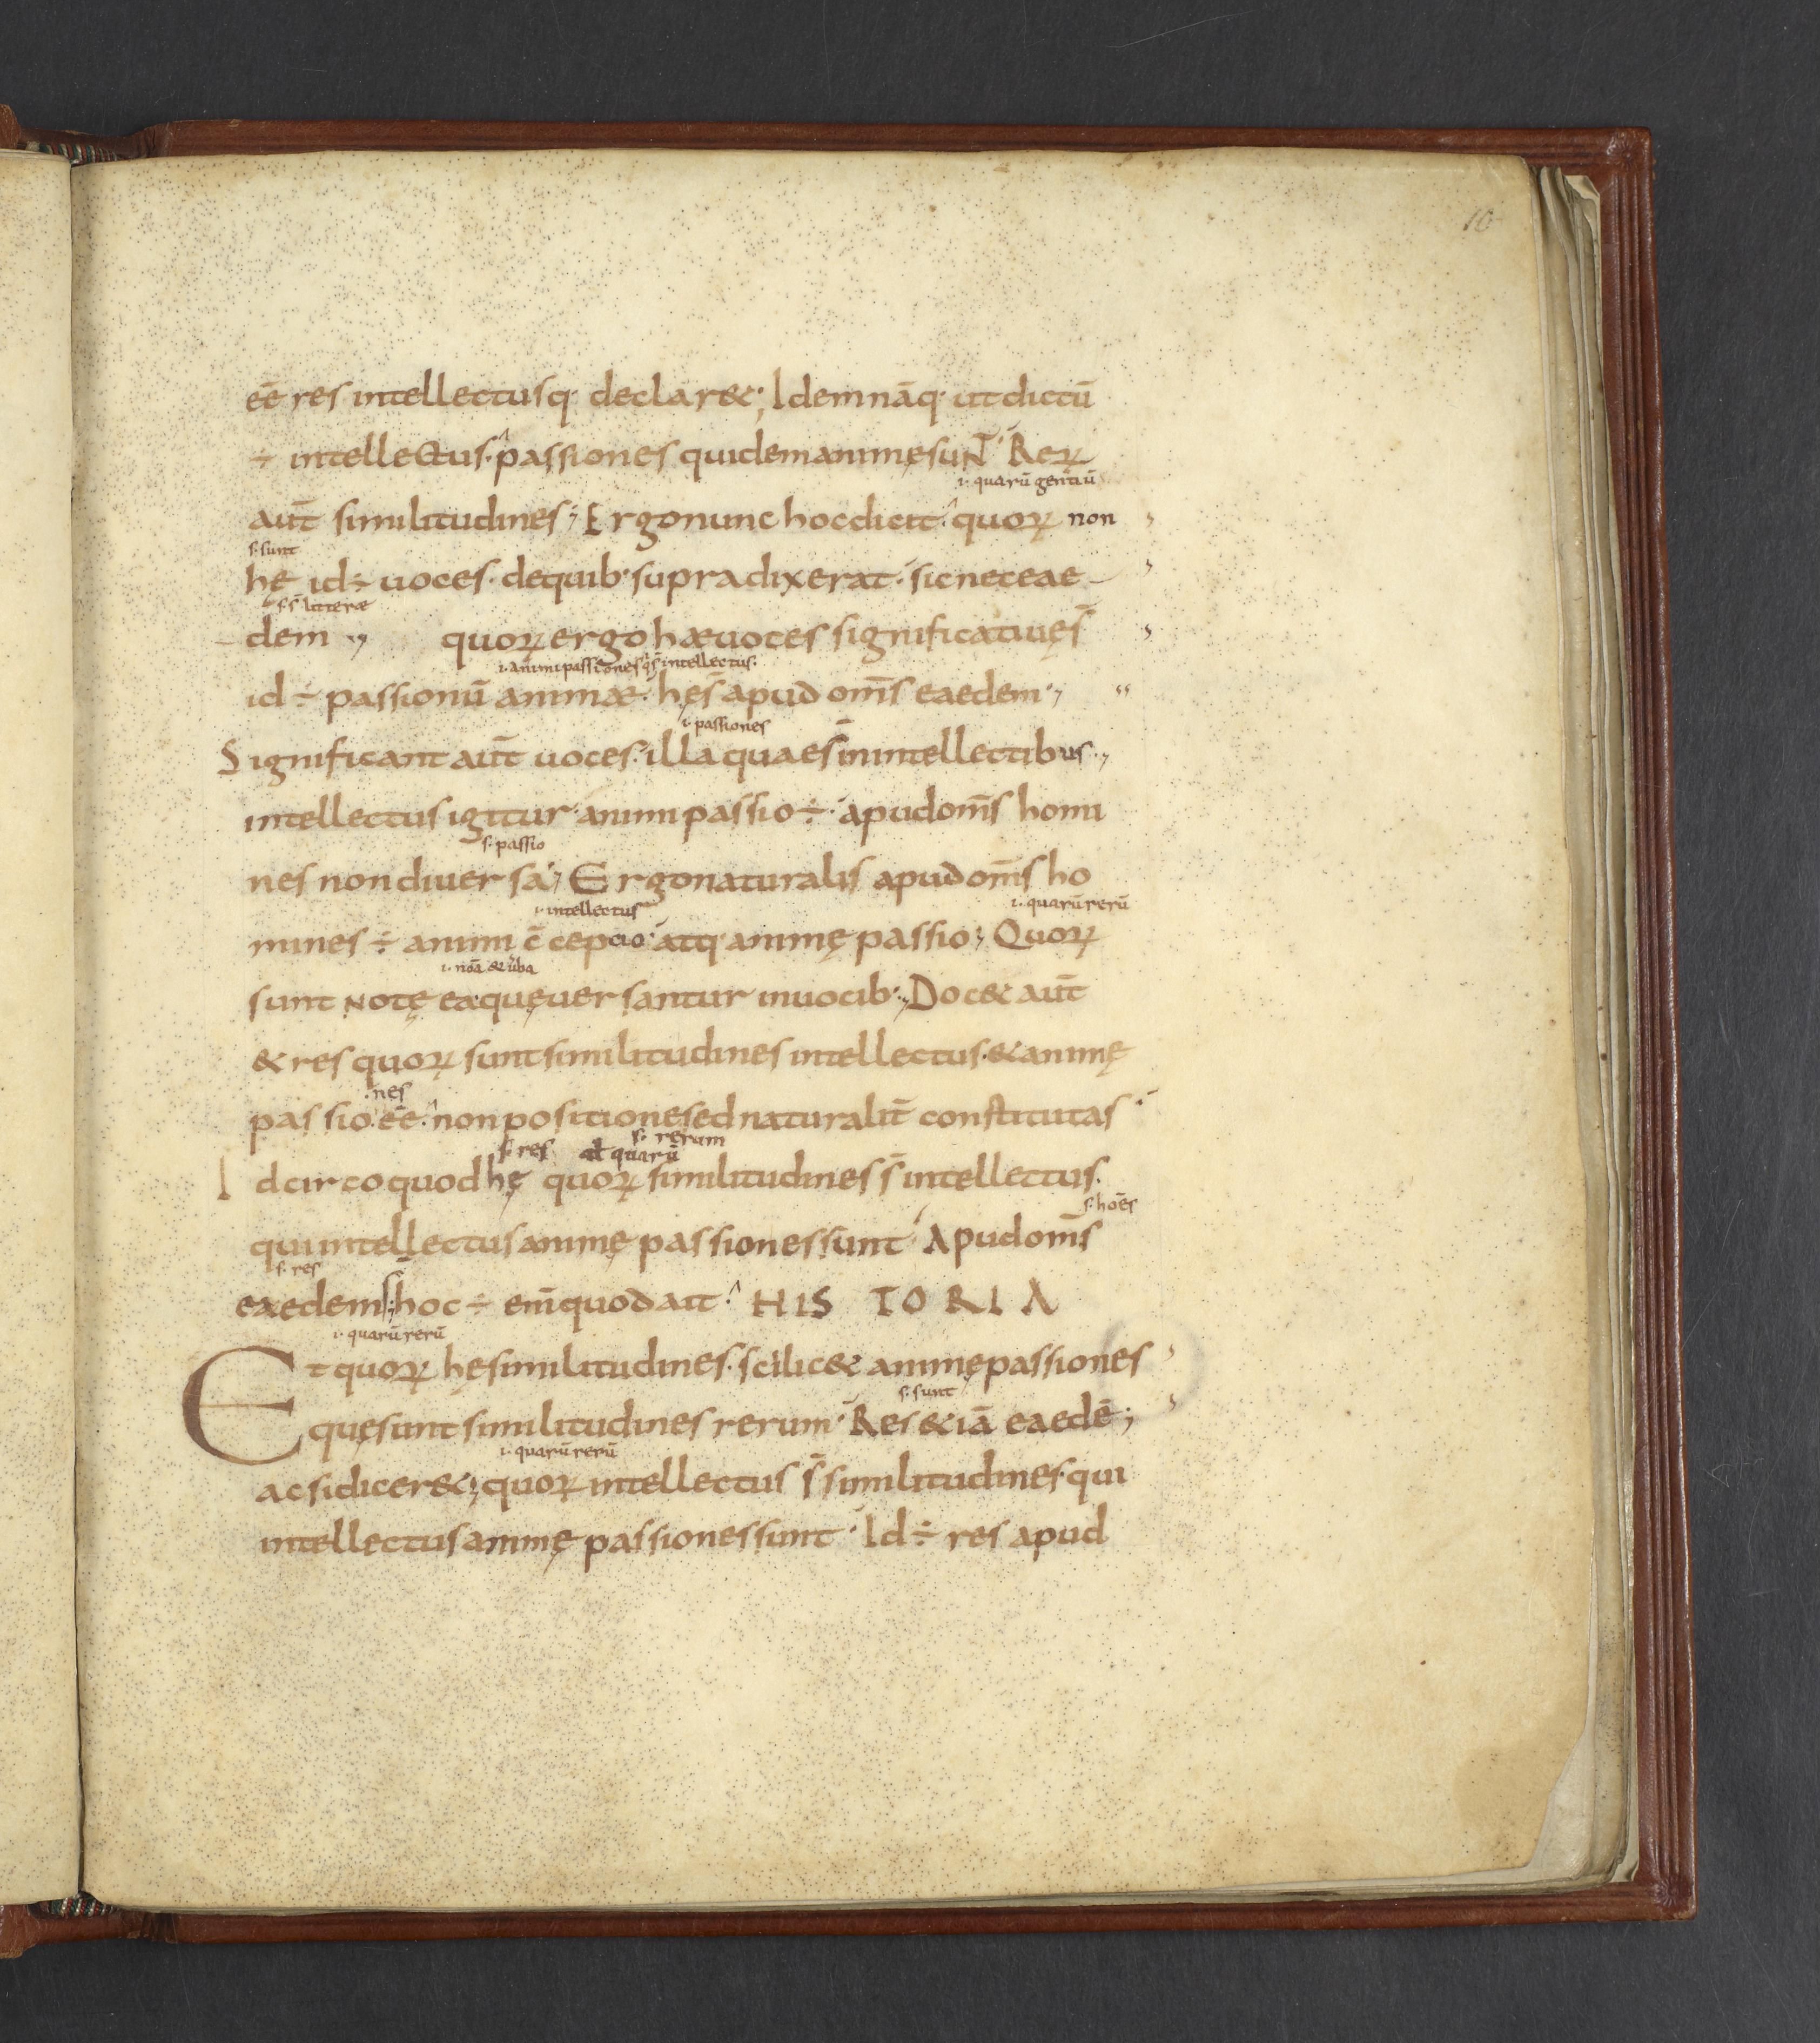 10
eē res intellectusq· declar&; Idem nāq· ut dictū
÷ intellectus· passiones quidem animę suNT Reꝝ
.i. quarū gentiū
aut̄ similitudines; Ergo nunc hoc dicit· quoꝝ non
s. sunt
hę id ÷ uoces· de quib· supra dixerat· sic nec eae
s. s̄ litterae
dem quoꝝ ergo hae uoces significatiuę s̄
.i. animi passiones q̄ s̄ intellectus·
id ÷ passionū animae· hę s̄ apud om̄s eaedem·,
.i. passiones
Significant aut̄ uoces· illa quae s̄ in intellectibus·,
intellectus igitur animi passio ÷· apud om̄s homi
s. passio
nes non diuersa·, Ergo naturalis apud om̄s ho
.i. intellectus .i. quarū rerū
mines ÷ animi c̄cepcio· atq· animę passio; Quoꝝ
.i. noā & uba
sunt Notę ea quę uersantur in uocib·, Doc& aut̄
& res quoꝝ sunt similitudines intellectus· & animę
nes
passio eē· non positione sed naturalit̄ constitutas·
s. res at quarū s. rerum
Idcirco quod hę quoꝝ similitudines s̄ intellectus·
s. hoēs
qui intellectus animę passiones sunt· Apud om̄s
s. res
eaedem s̄; hoc ÷ enī quod ait· HISTORIA
.i. quarū rerū
Et quoꝝ hę similitudines· scilic& animę passiones
s. sunt
quę sunt similitudines rerum· Res &iā eaedē;
.i. quarū rerū
ac si dicer&; quoꝝ intellectus s̄ similitudines· qui
intellectus animę passiones sunt· Id ÷ res apud